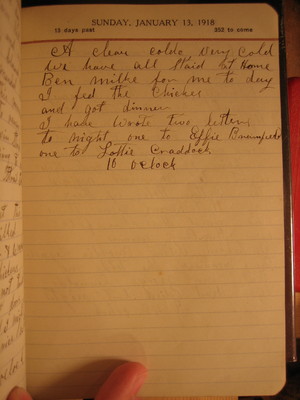 SUNDAY, JANUARY 13, 1918
13 days past 352 to come
A clear cold very cold
we have all staid at home
Ben milke for me to day
I fed the chickes
and got dinner
I have wrote two letters
to night one to Effie
one to Lottie Craddock
10 o'clock